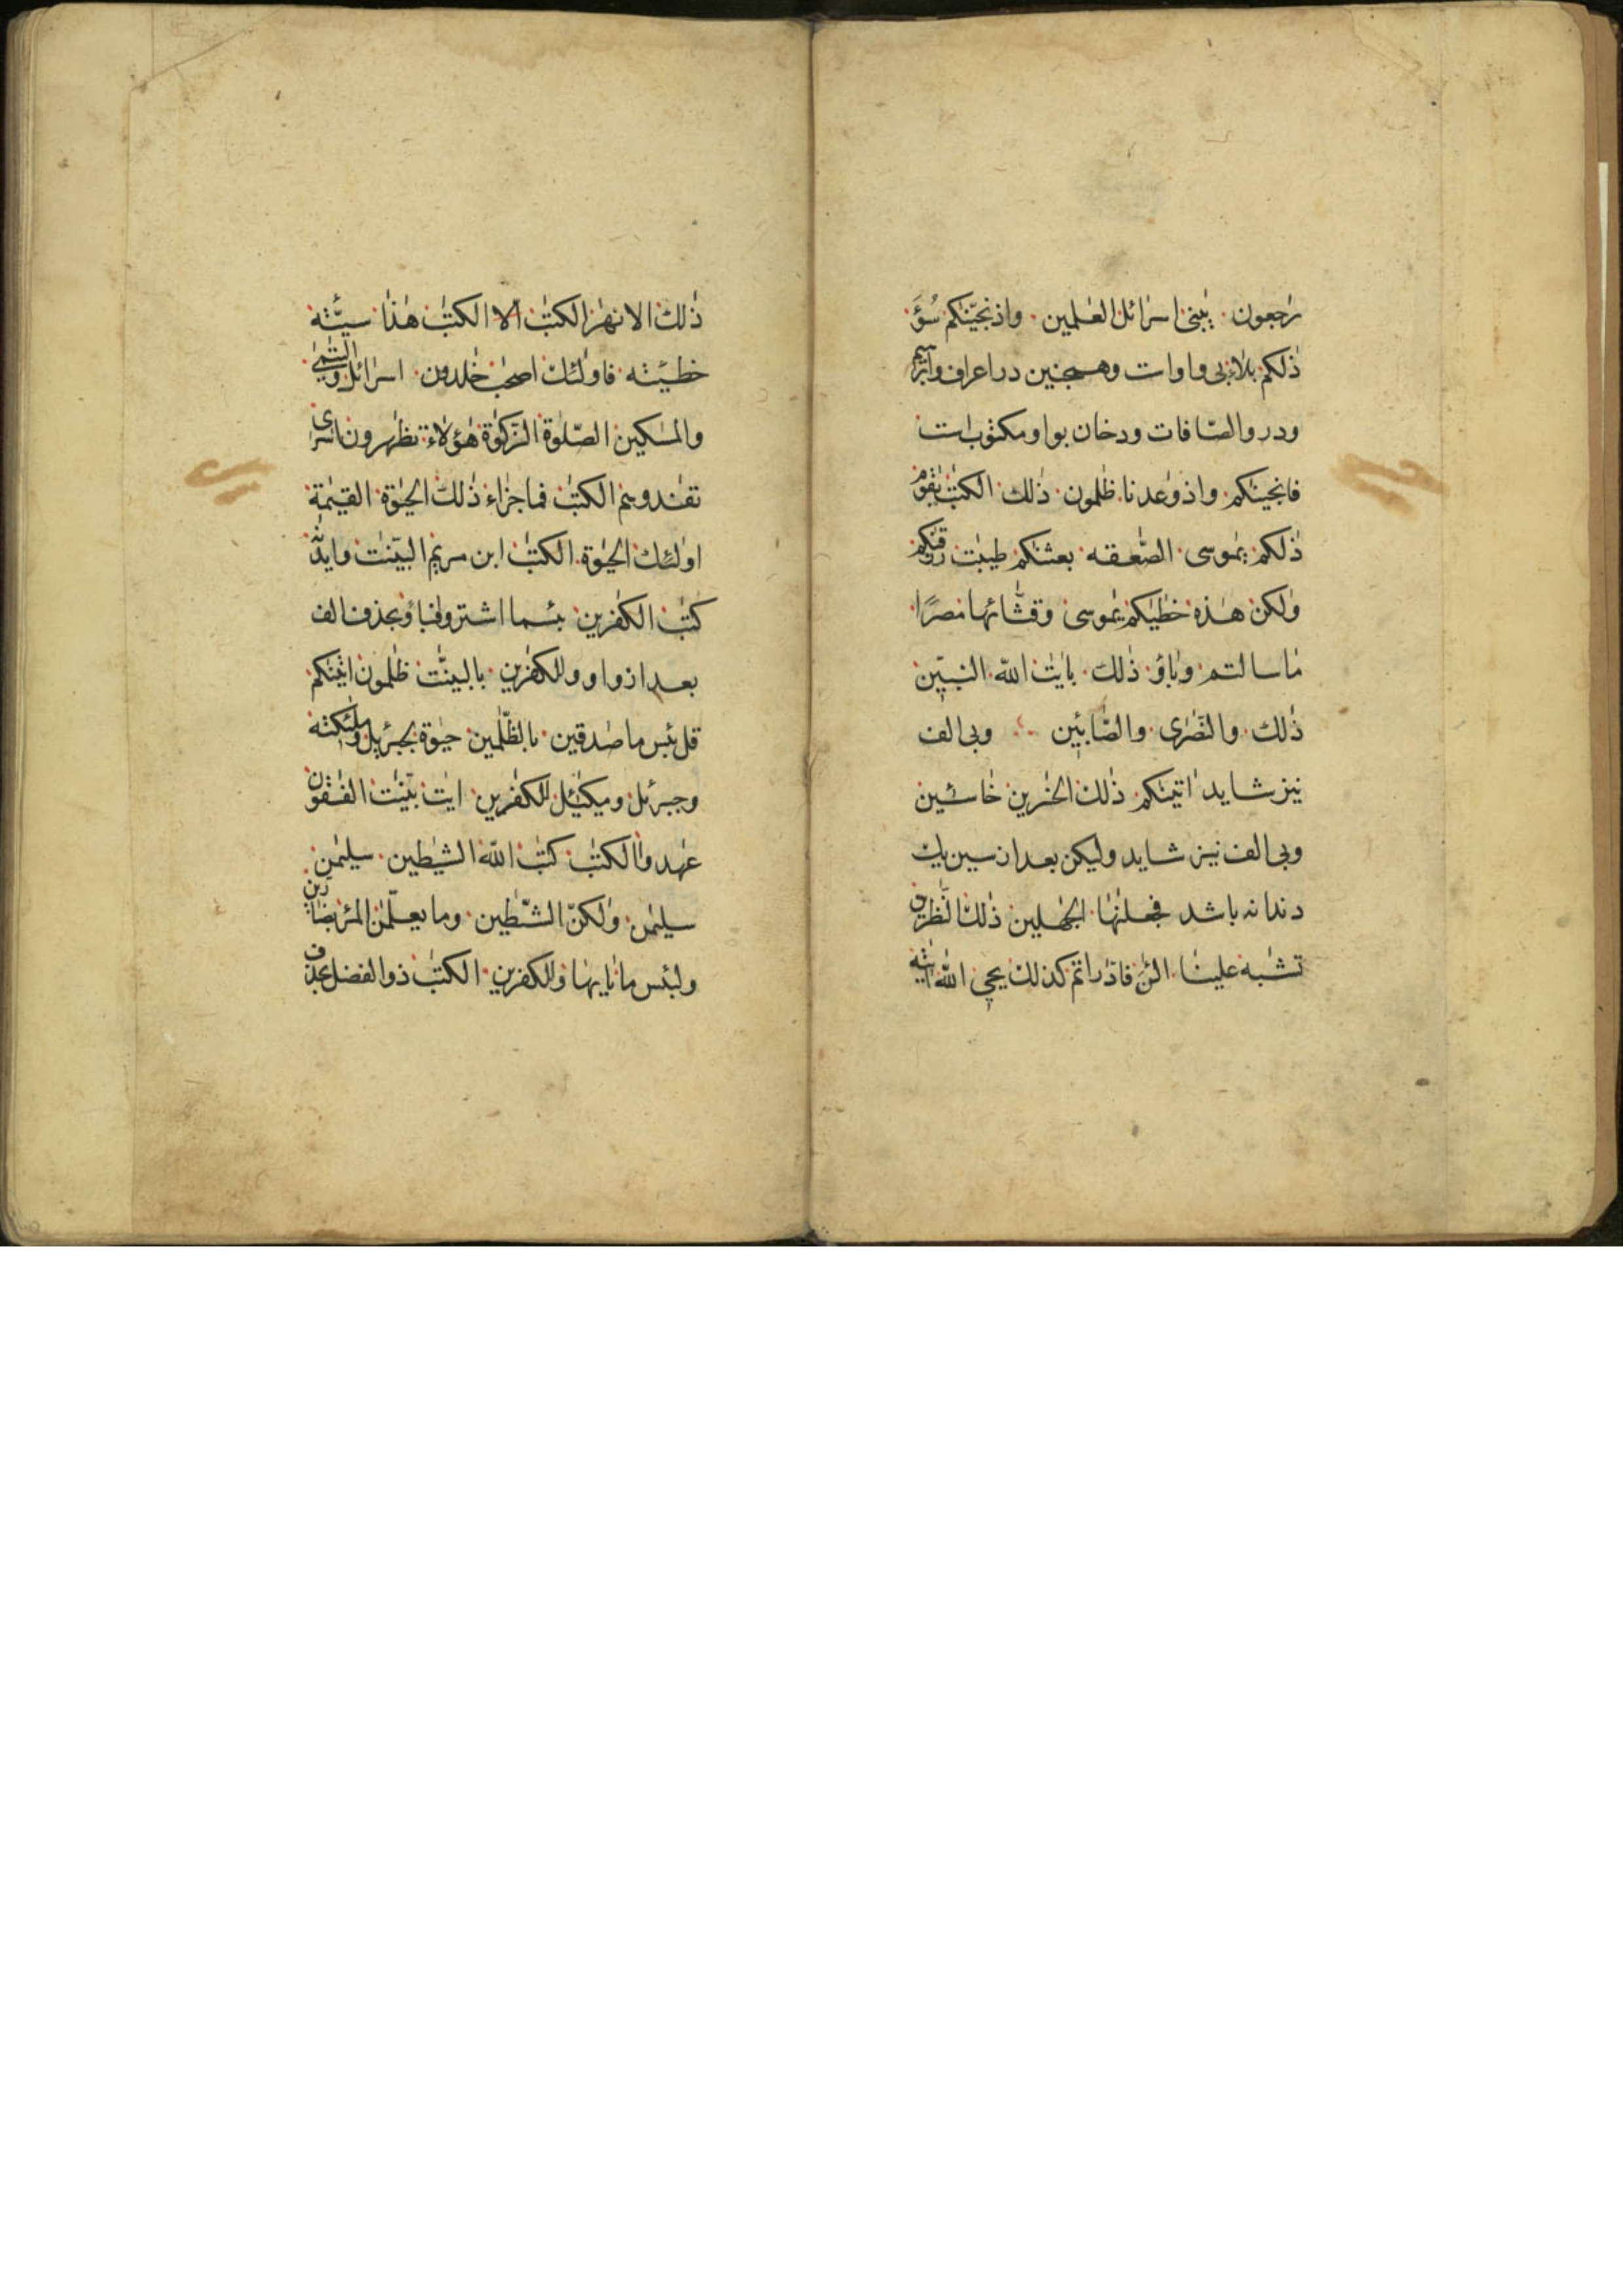 رٰجعون يٰبنى اسرائل العٰلمين واذ نجّينٰكم سُوٓءَ
ذٰلكم بلاء بى واوات وهمچنين در اعراف وابرٰهيم
ودر والصّافات ودخان بواو مكتوب است
فانجينٰكم واذ وٰعدنا ظٰلمون ذٰلك الكتٰب يٰقوم
ذٰلكم يٰموسى الصّٰعقه بعثنٰكم طيبٰت رزقنٰكم
ولٰكن هٰذه خطٰيٰكم يٰموسى وقثّٰائها مصرًا
ما سالتم وباؤ ذٰلك باٰيٰت الله النبيّٖن
ذٰلك والنّصٰرى والصّابئين وبى الف
نيز شايد اتينٰكم ذٰلك الخٰسرين خٰاسئين
وبى الف نيز شايد وليكن بعد از سين يك
دندانه باشد فجعلنٰها الجٰهلين ذٰلك النّٰظرين
تشٰبه علينا الئٰن فادّٰراتم كذلك يحيى الله اٰيٰته
ذٰلك الانهٰر الكتٰب الا الكتٰب هٰذا سيّئة
خطيٓئته فاولٰئك اصحٰب خٰلدون اسرٰائل واليتٰمٰى
والمسٰكين الصّلٰوة الزّكٰوة هٰؤلاء تظٰهرون اسٰرى
تفٰدوهم الكتٰب فما جزٰاء ذٰلك الحيٰوة القيٰمة
اولٰئك الحيٰوة الكتٰب ابن مريم البيّنٰت وايدنٰه
كتٰب الكٰفرين بئسما اشتروا فباؤ بحذف الف
بعد از واو وللكٰفرين بالبينّٰت ظٰلمون اتينٰكم
قل بئس ما صٰدقين بالظّٰلمين حيٰوة بجبرئيل وملٰئكته
وجبرئل وميكٰئيل للكٰفرين ايٰت بيّنٰت الفٰسقون
عٰهدوا الكتٰب كتٰب الله الشيٰطين سليمٰن
سليمٰن ولٰكنّ الشّيٰطين وما يعلّمٰن المرء بضارّين
ولبئس ما وللكٰفرين الكتٰب ذو الفضل بحذف